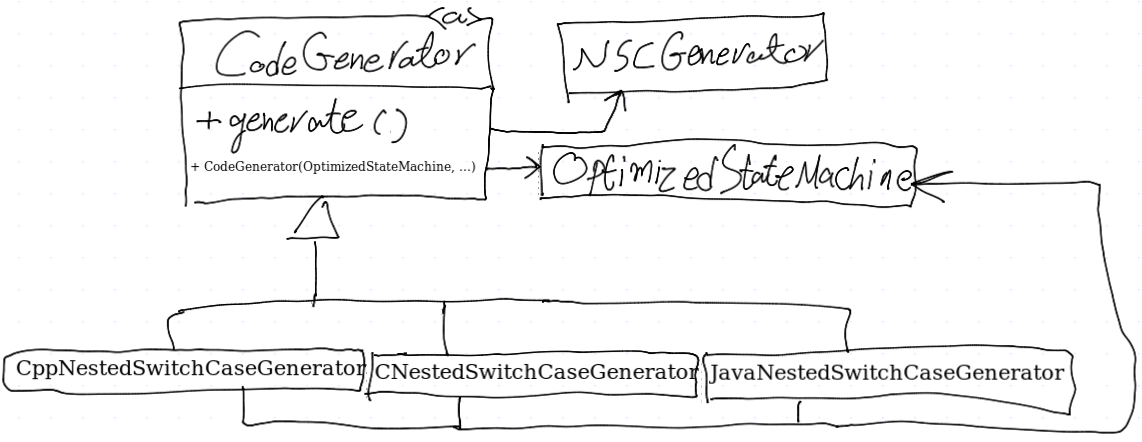 <a>
CodeGenerator
+ generate()
+ CodeGenerator(OptimizedStateMachine, ...)
NSCGenerator
OptimizedStateMachine
CppNestedSwitchCaseGenerator
CNestedSwitchCaseGenerator
JavaNestedSwitchCaseGenerator